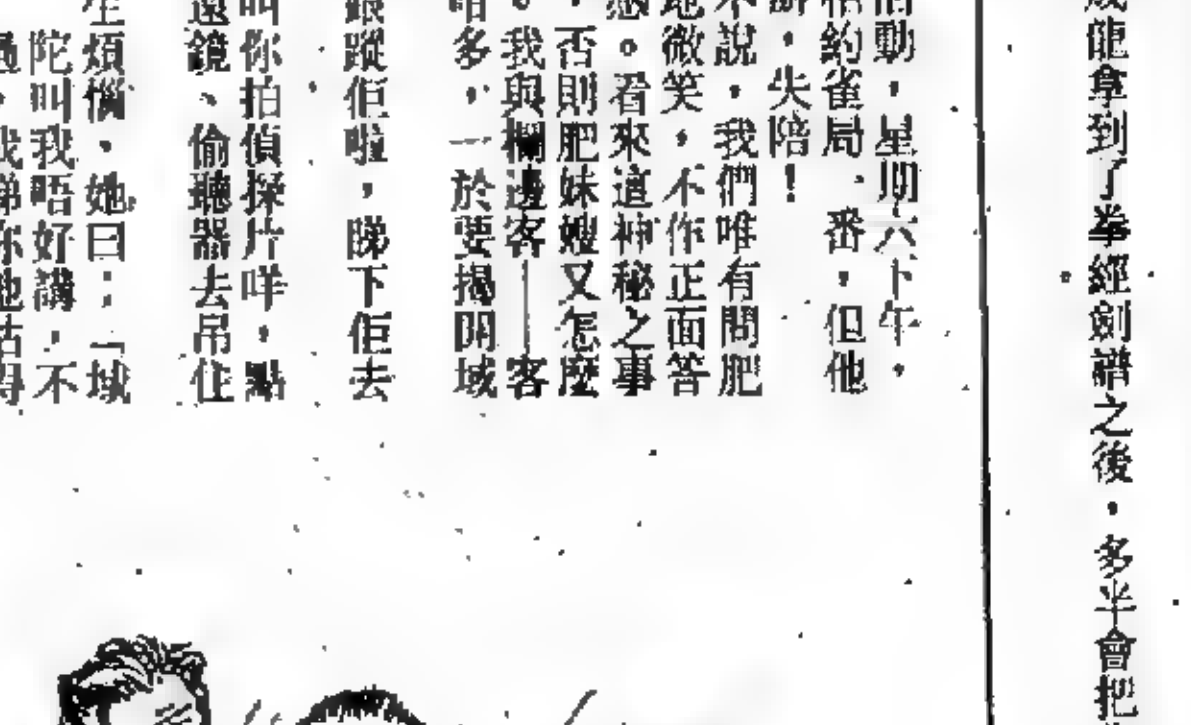 成龍拿到了拳經劍譜之後，多半會把
活動，星期六下午，
約雀局，番，但他
，失陪！
不說，我們唯有問肥
地微笑，不作正面答
惑。看來這神秘之事
，否則肥妹嫂又怎麼
。我與欄邊客——客
咁多，一於要揭開域
跟蹤佢啦，睇下佢去
叫你拍偵探片咩，點
遠鏡、偷聽器去吊住
生煩惱，她曰：「域
陀叫我唔好講，不
過，我睇你哋